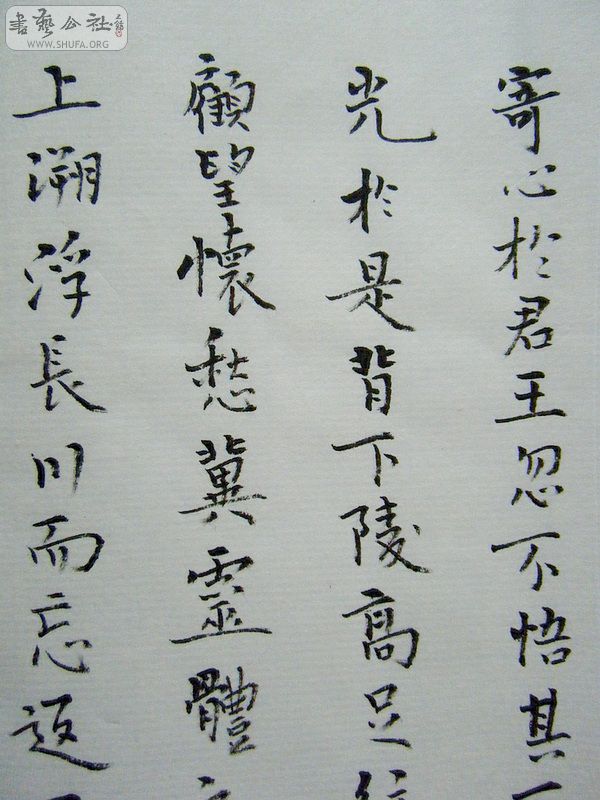 書藝公社
WWW.SHUFA.ORG
寄心於君王忽不悟其
光於是背下陵高足
顧望懷愁冀靈體
上溯浮長川而忘返